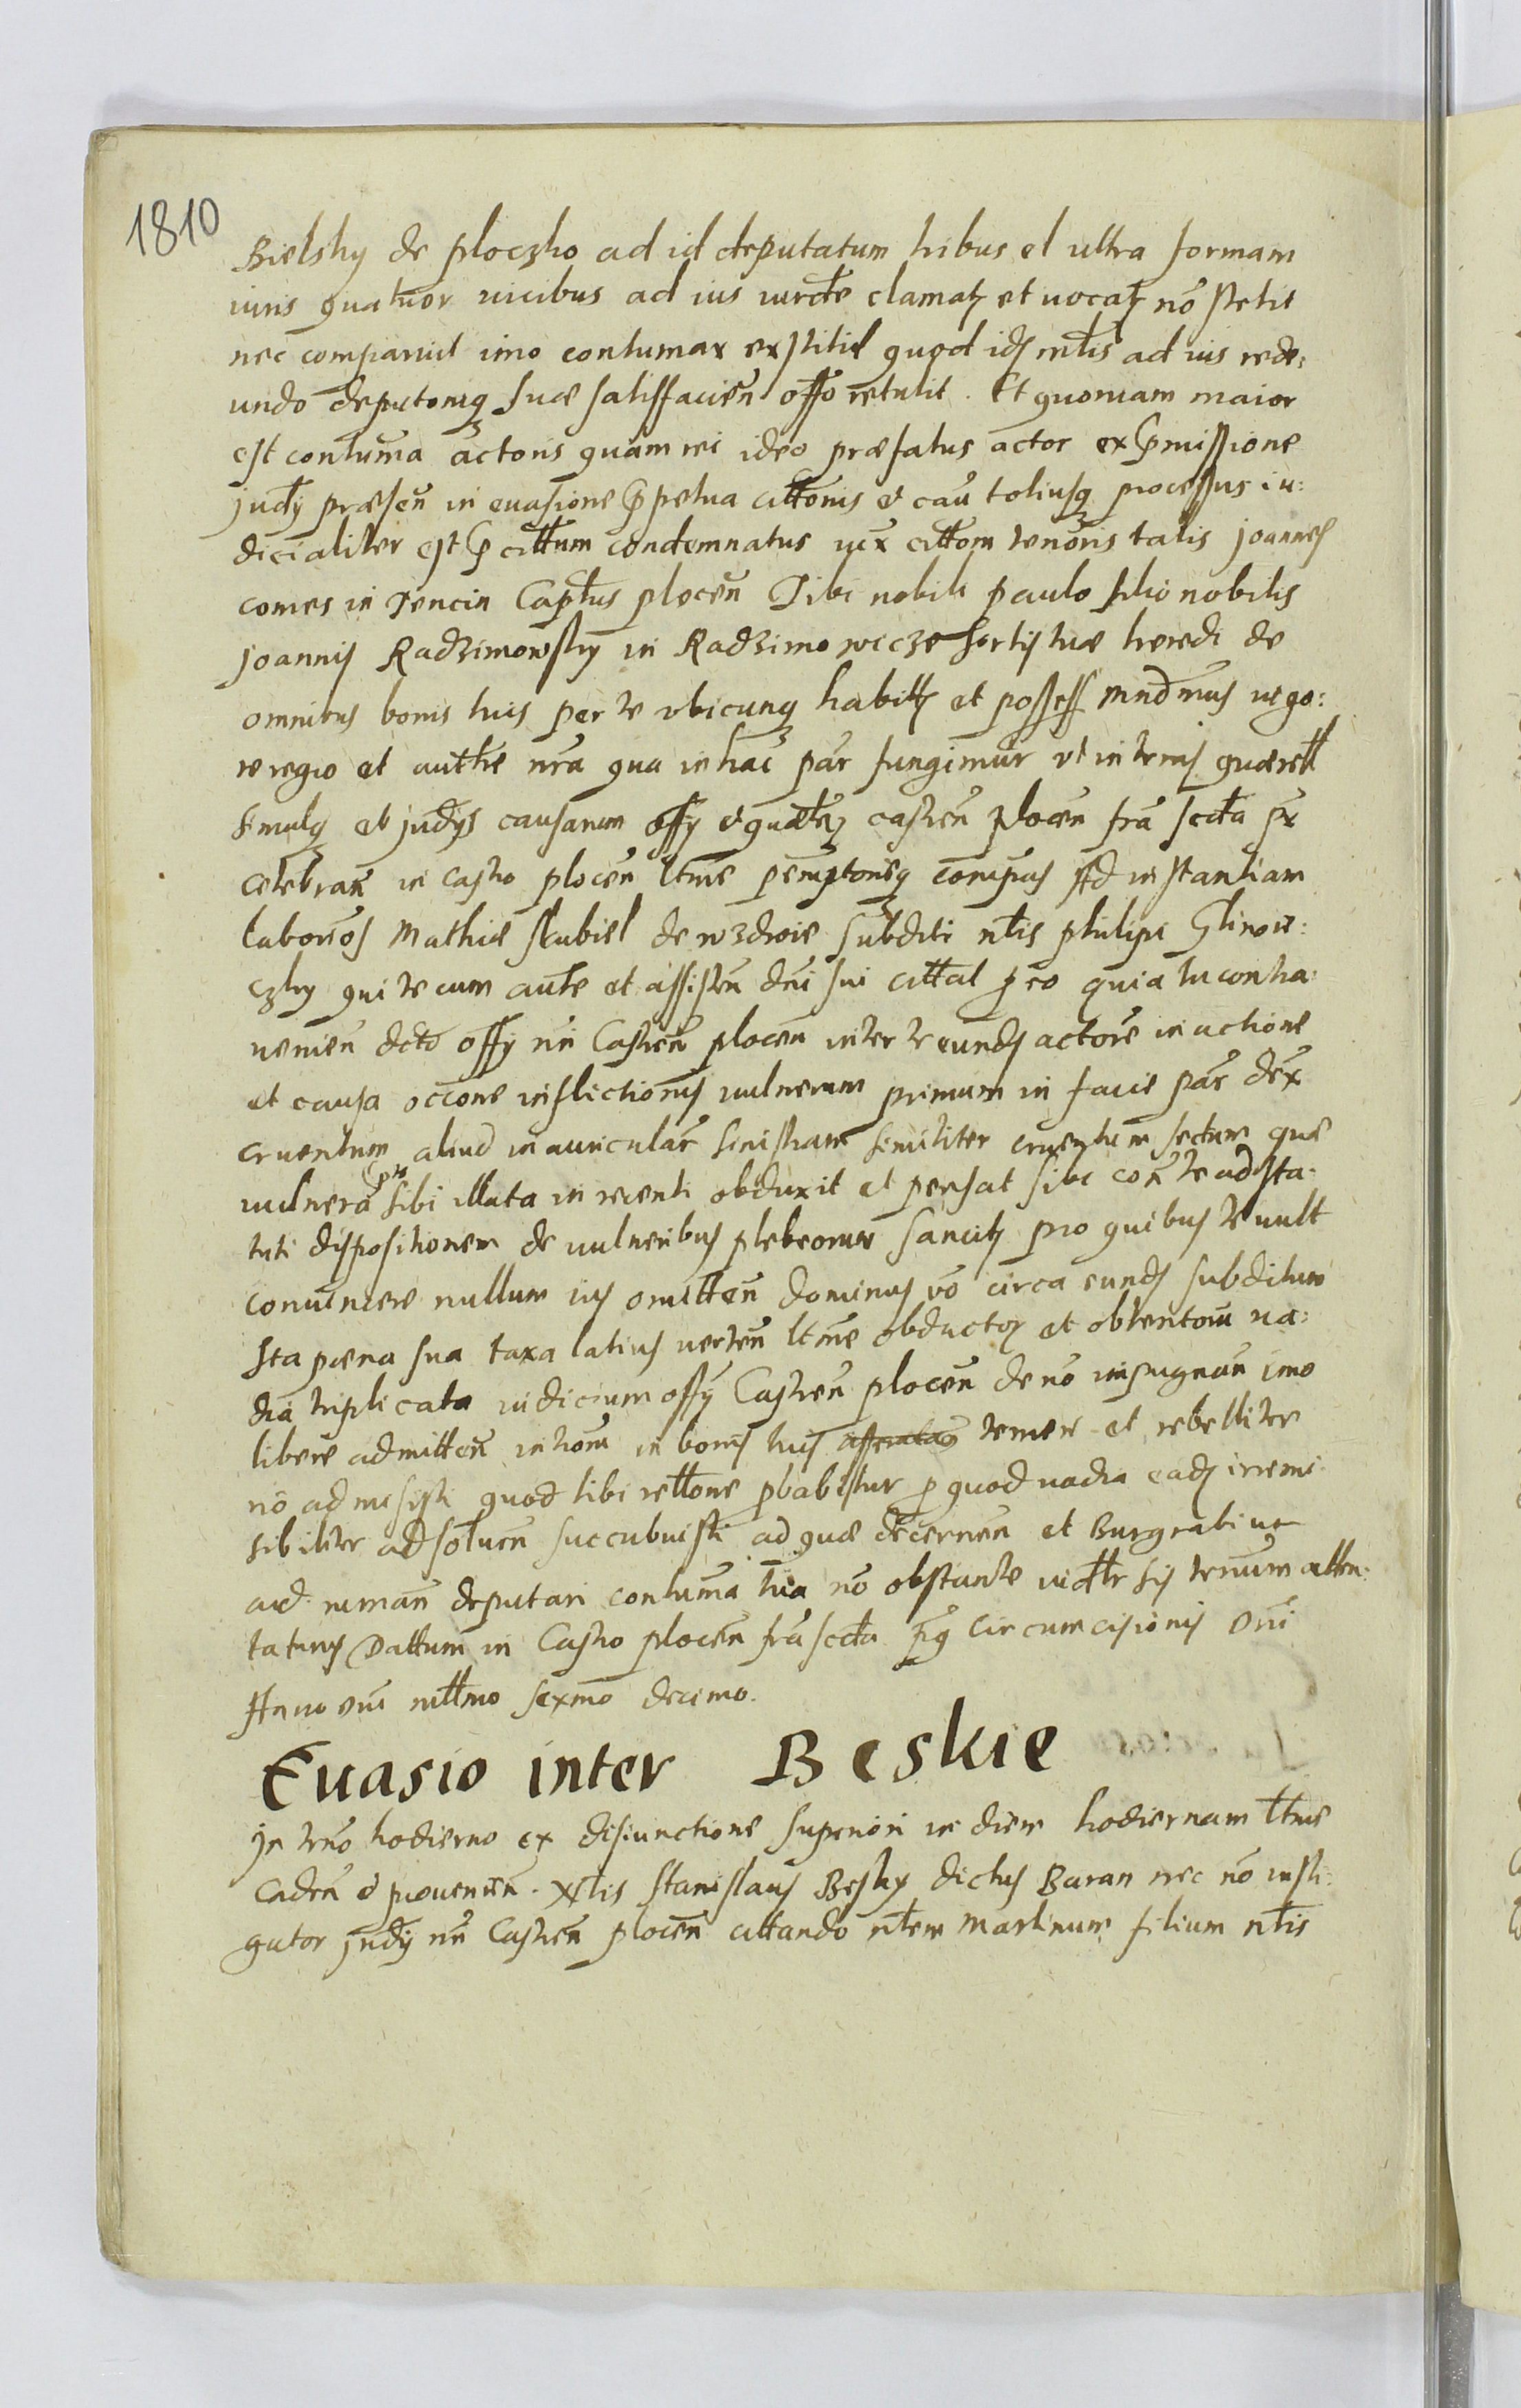 1810
Bielsky de ploczko ad id deputatum tribus et ultra formam
iuris quatuor vicibus ad ius iurdte clamat et vocat nō stetit
nec comparuit imo contumax exstitit quod idz mtlis ad ius redē:
undo deputoniq suæ satisfacien̄ offo retulit. Et quoniam maior
est contuma actoris quam rei ideo præfatus actor ex pmissione
judÿ præsen̄ in evasione ppetua cittonis et cau totiusq processus iu:
dicialiter est p cittum condemnatus iux cittom tenoris talis Joannes
comes in Tencin Captus plocen̄ Tibi nobili paulo filio nobilis
Joannis Radzimowsky in Radzimowicze sortis tuæ heredi de
omnibus bonis tuis per te ubicunq habitt et possess mndmus vigo:
re regio et autthe nra qua in hac par fungimur ut in trnis quærell
simulq et judys causarum offÿ et quætez castren̄ plocen̄ fra sccta px
celebran̄ in castro plocen̄ ltme pemptorieq compeas Ad instantiam
laborios Mathiæ skubiel de wzdroie subditi ntlis philipi Glinow:
czky qui te cum authe et assisten̄ dni sui cittat pro eo quia tu contra:
uenien̄ dcto offÿ nri Castren̄ plocen̄ inter te eundz actore in actione
et causa occōne inflictionis uulnerum primum in facie par dex
cruentum aliud in auricular sinistram similiter cruentum sectum quæ
uulnera pte sibi illata in recenti obduxit et pensat sibi con te ad sta:
tuti dispositionem de uulneribus plebeorum sancitz pro quibus te uult
conuincere nullum ius omitten̄ dominus vo circa eundz subditum
sta pæna sua taxa latius uerten̄ ltme obductoz et obtentoru ua:
dia triplicata iudicium offÿ Castren̄ plocen̄ de nō impugnan̄ imo
libere admitten̄ introm in bonis tuis temere et rebelliter
nō admisisti quod tibi rellone pbabitur p quod uadia eadz irremi
sibiliter ad soluen̄ succubuisti ad quæ decernen̄ et Burgrabiur
aid ruman̄ deputari contuma tua nō obstante uidttr sis trnum atten:
taturus Dattum in Castro plocen̄ fra sccta pq Circumcisionis Dni
Anno dni mttmo sexmo decimo.
Evasio inter Beskie
In trno hodierno ex disiunctione superiori in diem hodiernam ltme
caden̄ et prouenien̄. Ntlis Stanislaus Besky dictus Baran nec nō insti:
gator judÿ nri Castren̄ plocen̄ cittando ntlem Martinum filium ntlis